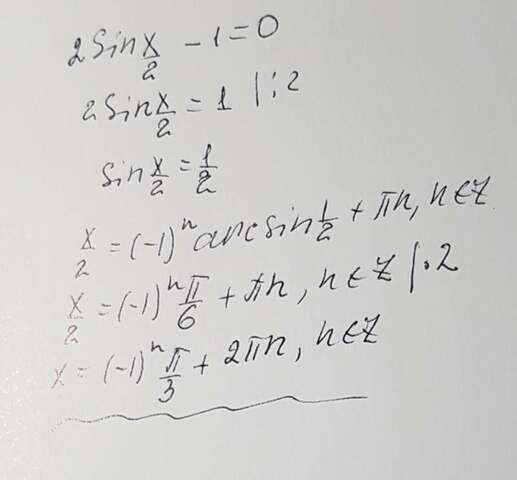 2 sin x/2 - 1 = 0
2 sin x/2 = 1 | : 2
sin x/2 = 1/2
x/2 = (-1)^n arcsin 1/2 + πn, n ∈ Z
x/2 = (-1)^n π/6 + πn, n ∈ Z | · 2
x = (-1)^n π/3 + 2πn, n ∈ Z